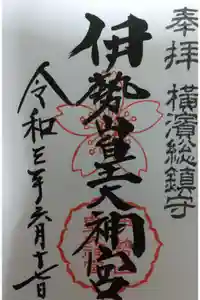 奉拝 横濱総鎮守
伊勢山皇大神宮
令和三年六月十七日